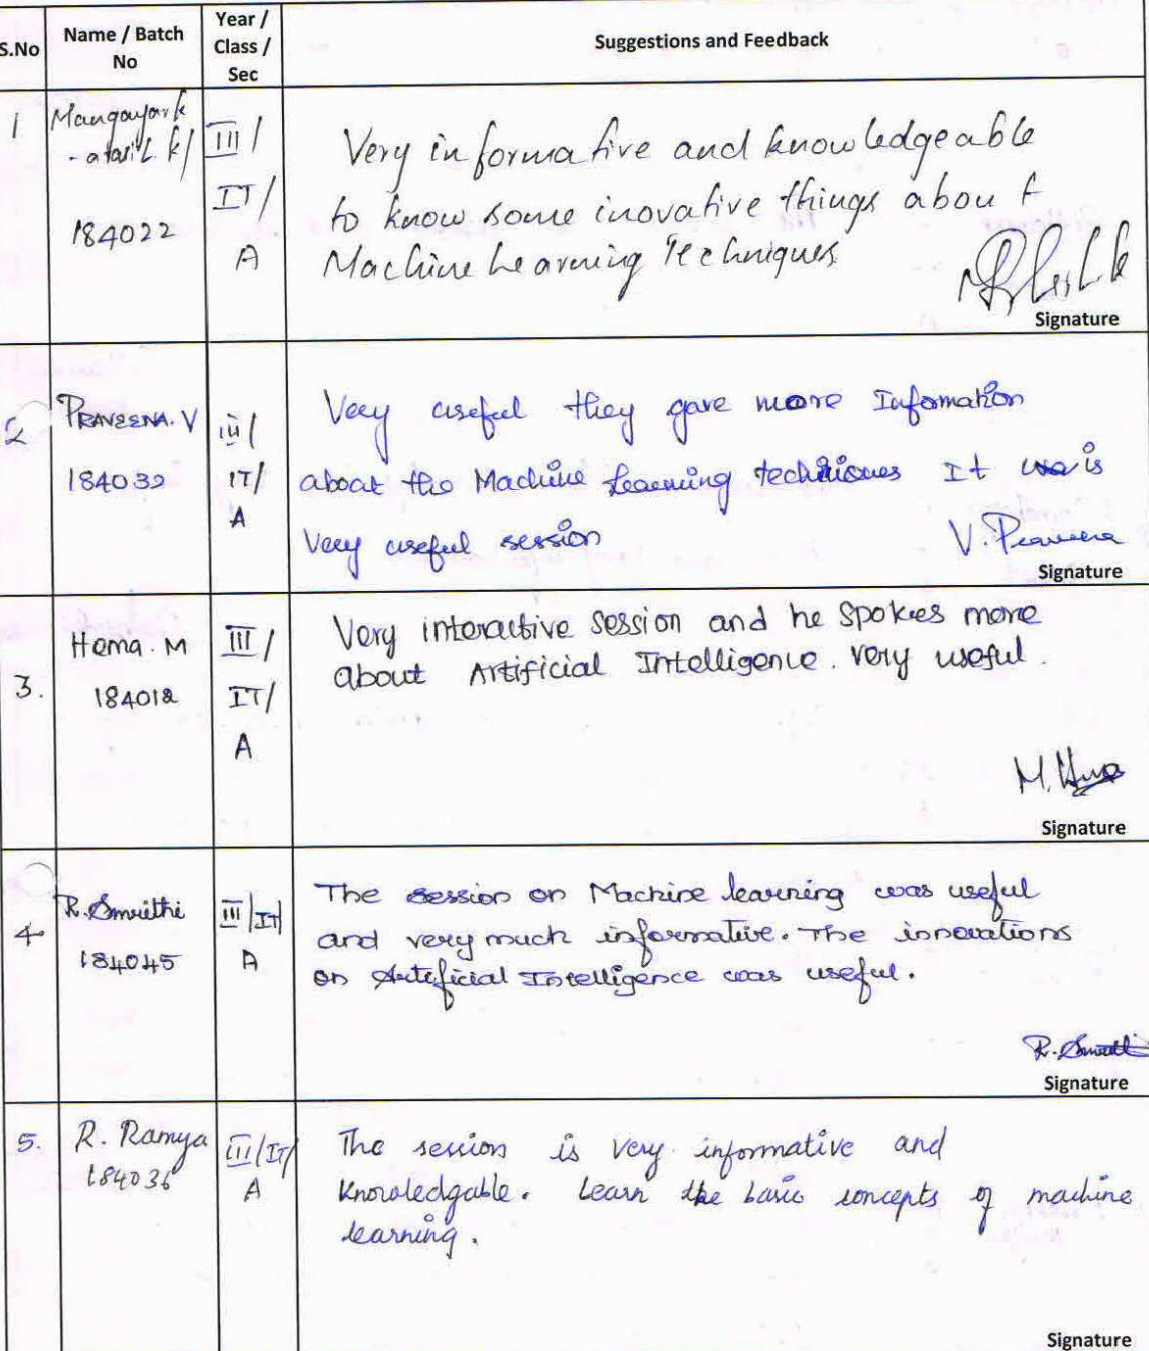 S.No
Name / Batch
No
Year /
Class /
Sec
Suggestions and Feedback
1
Mangayark
-arasi L. k/
184022
III/
IT/
A
Very informative and knowledgeable
to know some inovative things about
Machine Learning Techniques
Signature
2
PRAVEENA. V
184032
iii/
IT/
A
Very useful they gave more Information
about the Machine Learning techniques It is
Very useful session
V. Praveena
Signature
3.
Hema. M
184018
III/
IT/
A
Very interactive session and he spokes more
about Artificial Intelligence. very useful.
M. Hema
Signature
4
R. Smrithi
184045
III/IT/
A
The session on Machine learning was useful
and very much informative. The innovations
on Artificial Intelligence was useful.
R. Smrithi
Signature
5.
R. Ramya
184036
III/IT/
A
The session is very informative and
knowledgable. Learn the basic concepts of machine
learning.
Signature